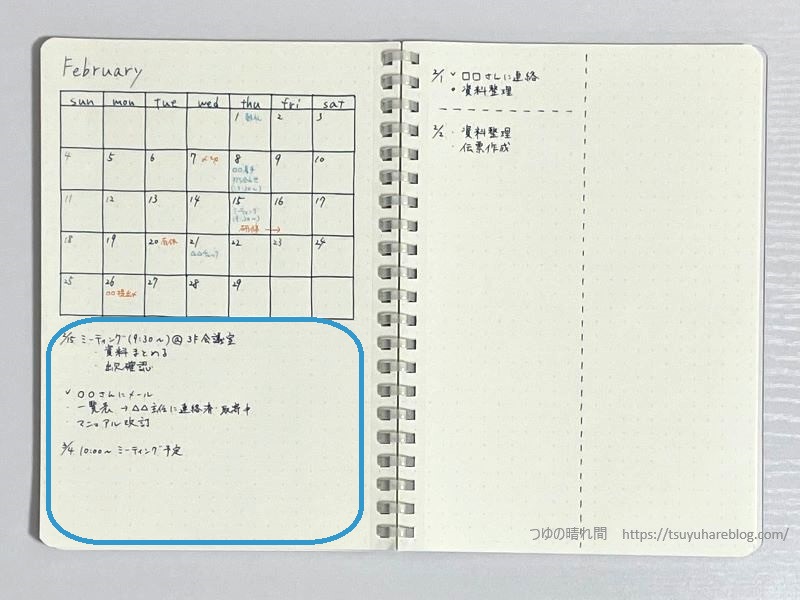 February
sun mon tue wed thu fri sat
1 2 3
4 5 6 7 〆切 8 9 10
○○着手
打ち合わせ
(13:30〜)
11 12 13 14 15 16 17
ミーティング
(9:30〜)
研修 →
18 19 20 有休 21 22 23 24
△△チェック
25 26 27 28 29
○○提出〆
2/15 ミーティング(9:30〜)@3F会議室
・資料まとめる
・出欠確認
✓ ○○さんにメール
・一覧表 → △△主任に連絡済 取寄中
・マニュアル改訂
3/4 10:00〜 ミーティング予定
2/1 ✓ □□さんに連絡
• 資料整理
2/2 ・ 資料整理
・ 伝票作成
つゆの晴れ間 https://tsuyuhareblog.com/